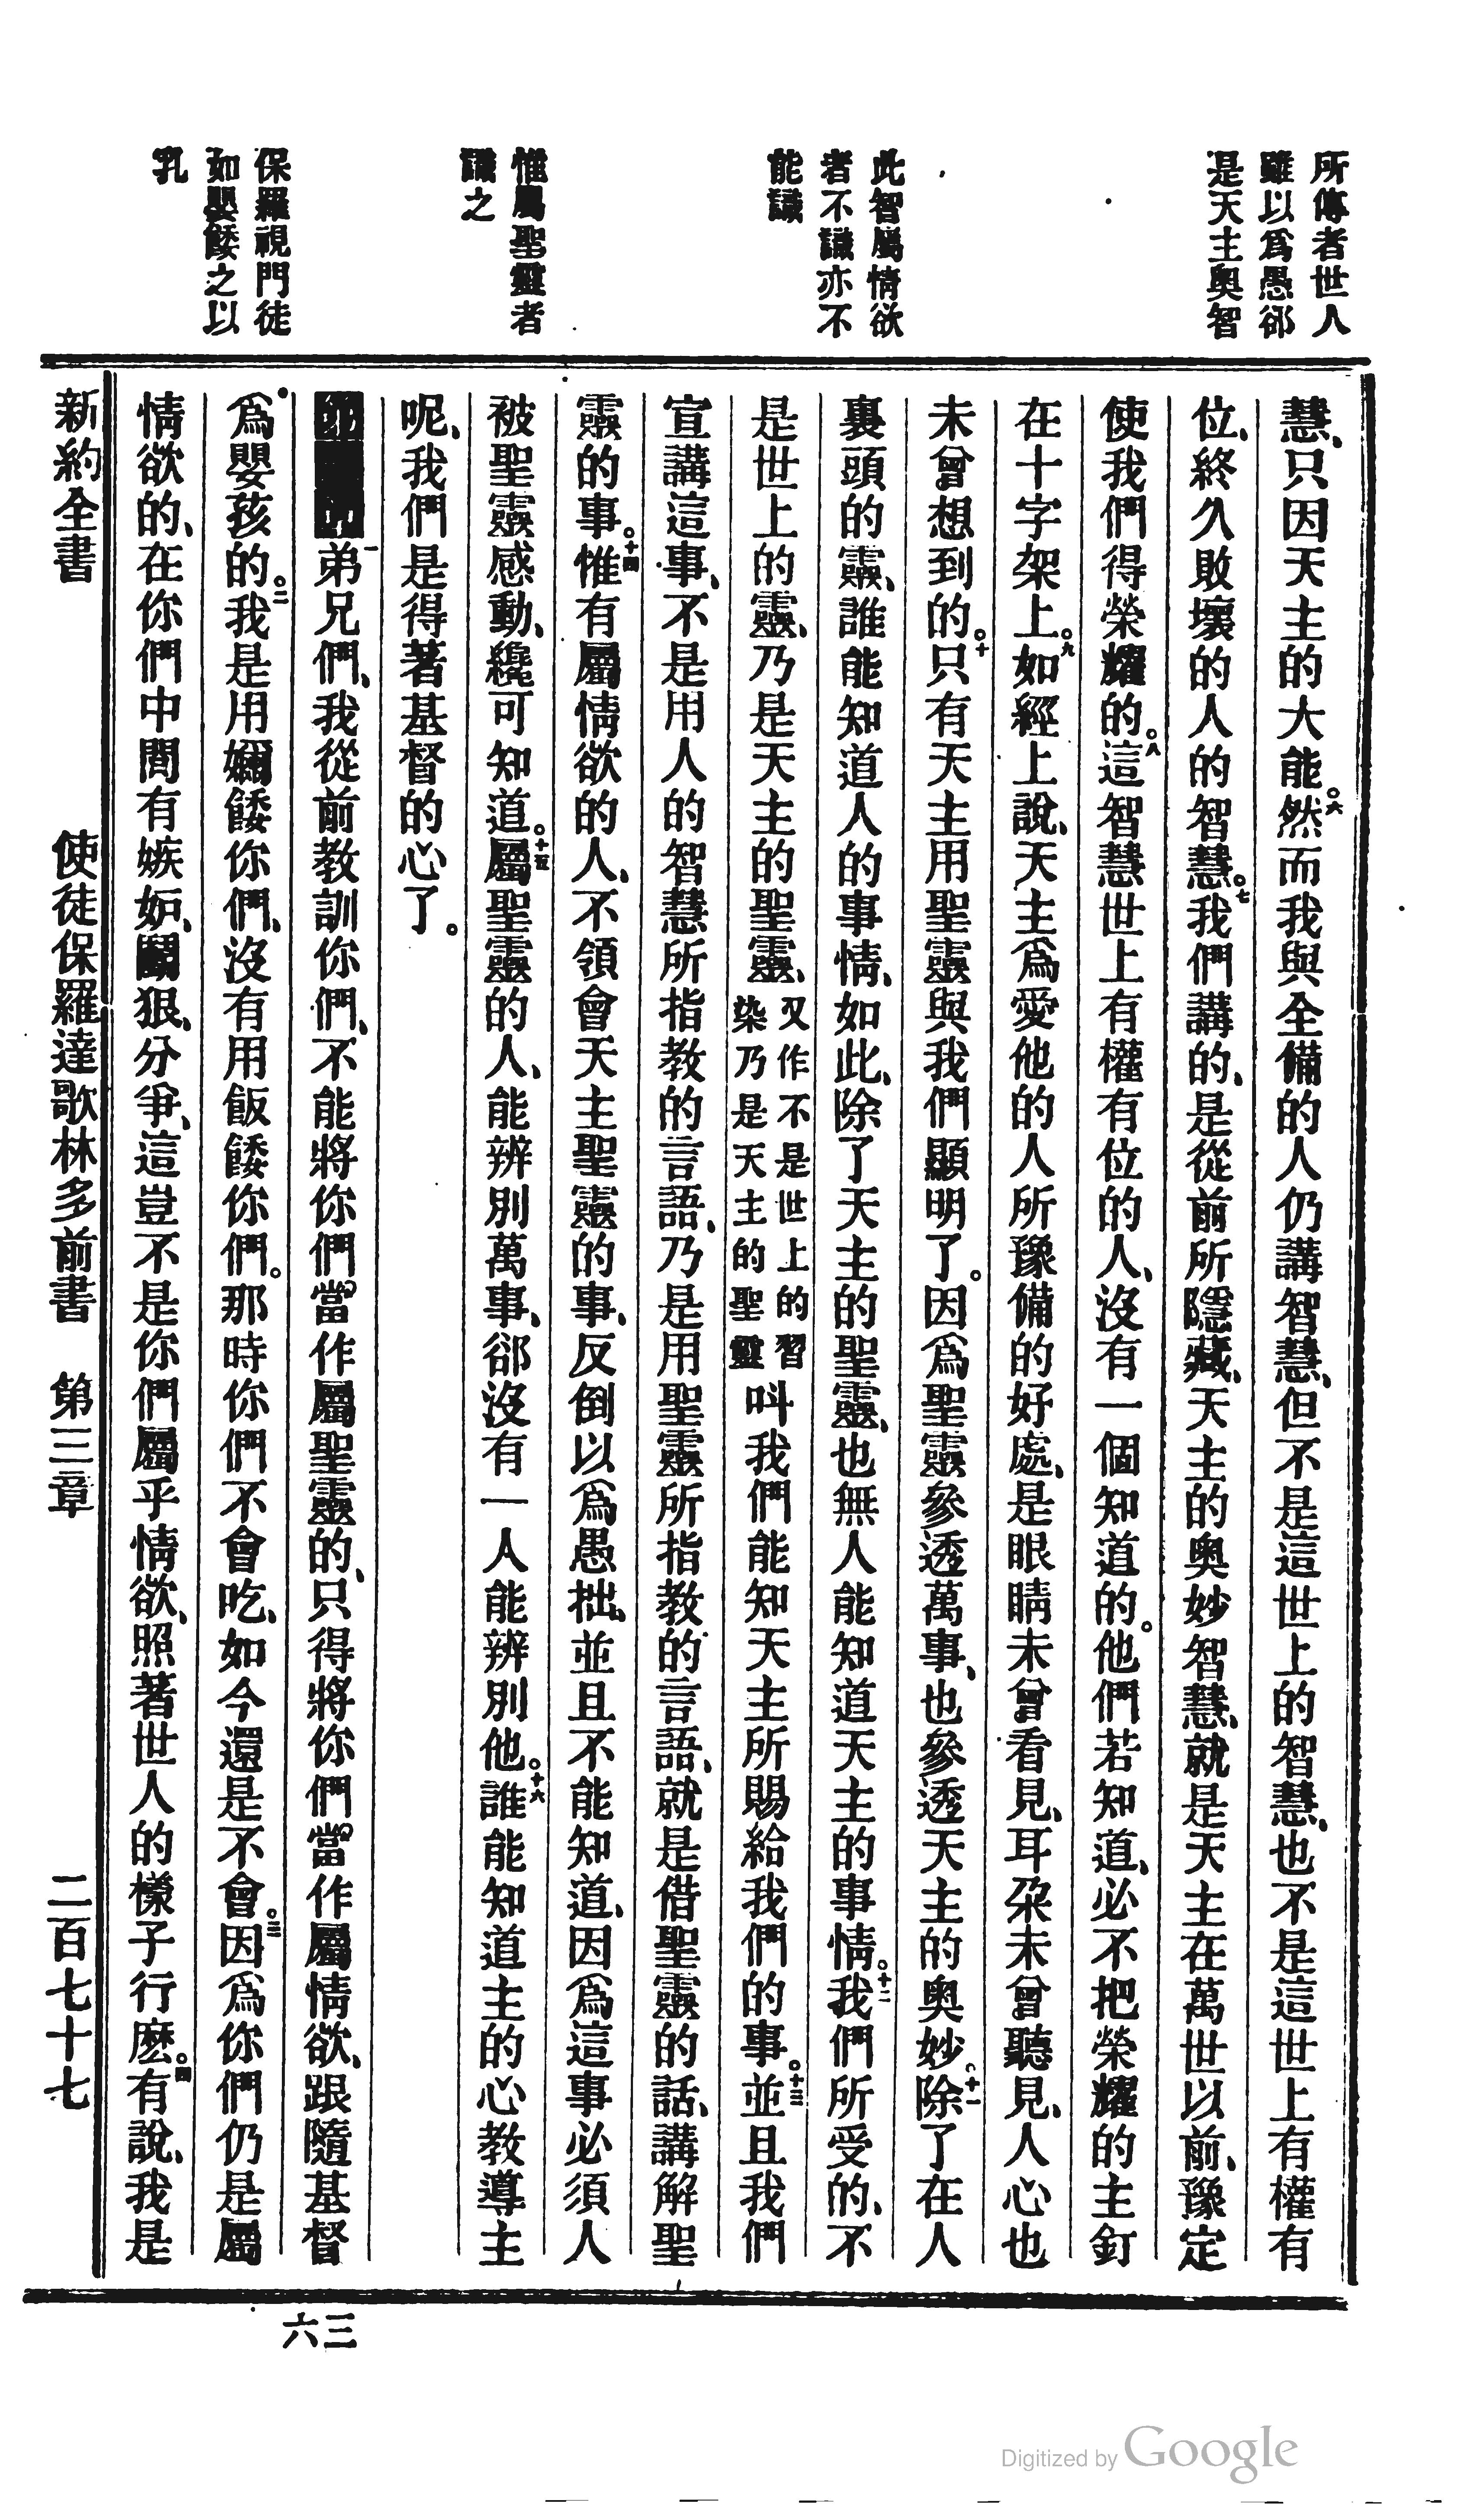 所傳者世人
雖以爲愚郤
是天主奧智
此智屬情欲
者不識亦不
能識
惟屬聖靈者
識之
保羅視門徒
如嬰餧之以
乳
慧、只因天主的大能。六然而我與全備的人仍講智慧、但不是這世上的智慧、也不是這世上有權有
位、終久敗壞的人的智慧。七我們講的、是從前所隱藏、天主的奧妙智慧、就是天主在萬世以前、豫定
使我們得榮耀的。八這智慧世上有權有位的人、沒有一個知道的。他們若知道、必不把榮耀的主釘
在十字架上。九如經上說、天主爲愛他的人所豫備的好處、是眼睛未曾看見、耳朶未曾聽見、人心也
未曾想到的。十只有天主用聖靈與我們顯明了。因爲聖靈參透萬事、也參透天主的奧妙。十一除了在人
裏頭的靈、誰能知道人的事情、如此、除了天主的聖靈、也無人能知道天主的事情。十二我們所受的、不
是世上的靈、乃是天主的聖靈、又作不是世上的習染乃是天主的聖靈叫我們能知天主所賜給我們的事。十三並且我們
宣講這事、不是用人的智慧所指教的言語、乃是用聖靈所指教的言語、就是借聖靈的話、講解聖
靈的事。十四惟有屬情欲的人、不領會天主聖靈的事、反倒以爲愚拙、並且不能知道、因爲這事必須人
被聖靈感動、纔可知道。十五屬聖靈的人、能辨別萬事、郤沒有一人能辨別他。十六誰能知道主的心教導主
呢、我們是得著基督的心了。
一弟兄們、我從前教訓你們、不能將你們當作屬聖靈的、只得將你們當作屬情欲、跟隨基督
爲嬰孩的。二我是用嬭餧你們、沒有用飯餧你們。那時你們不會吃、如今還是不會。三因爲你們仍是屬
情欲的、在你們中間有嫉妬、鬬狠、分爭、這豈不是你們屬乎情欲、照著世人的樣子行麽。四有說、我是
新約全書 使徒保羅達歌林多前書 第三章 二百七十七
三六
Digitized by Google